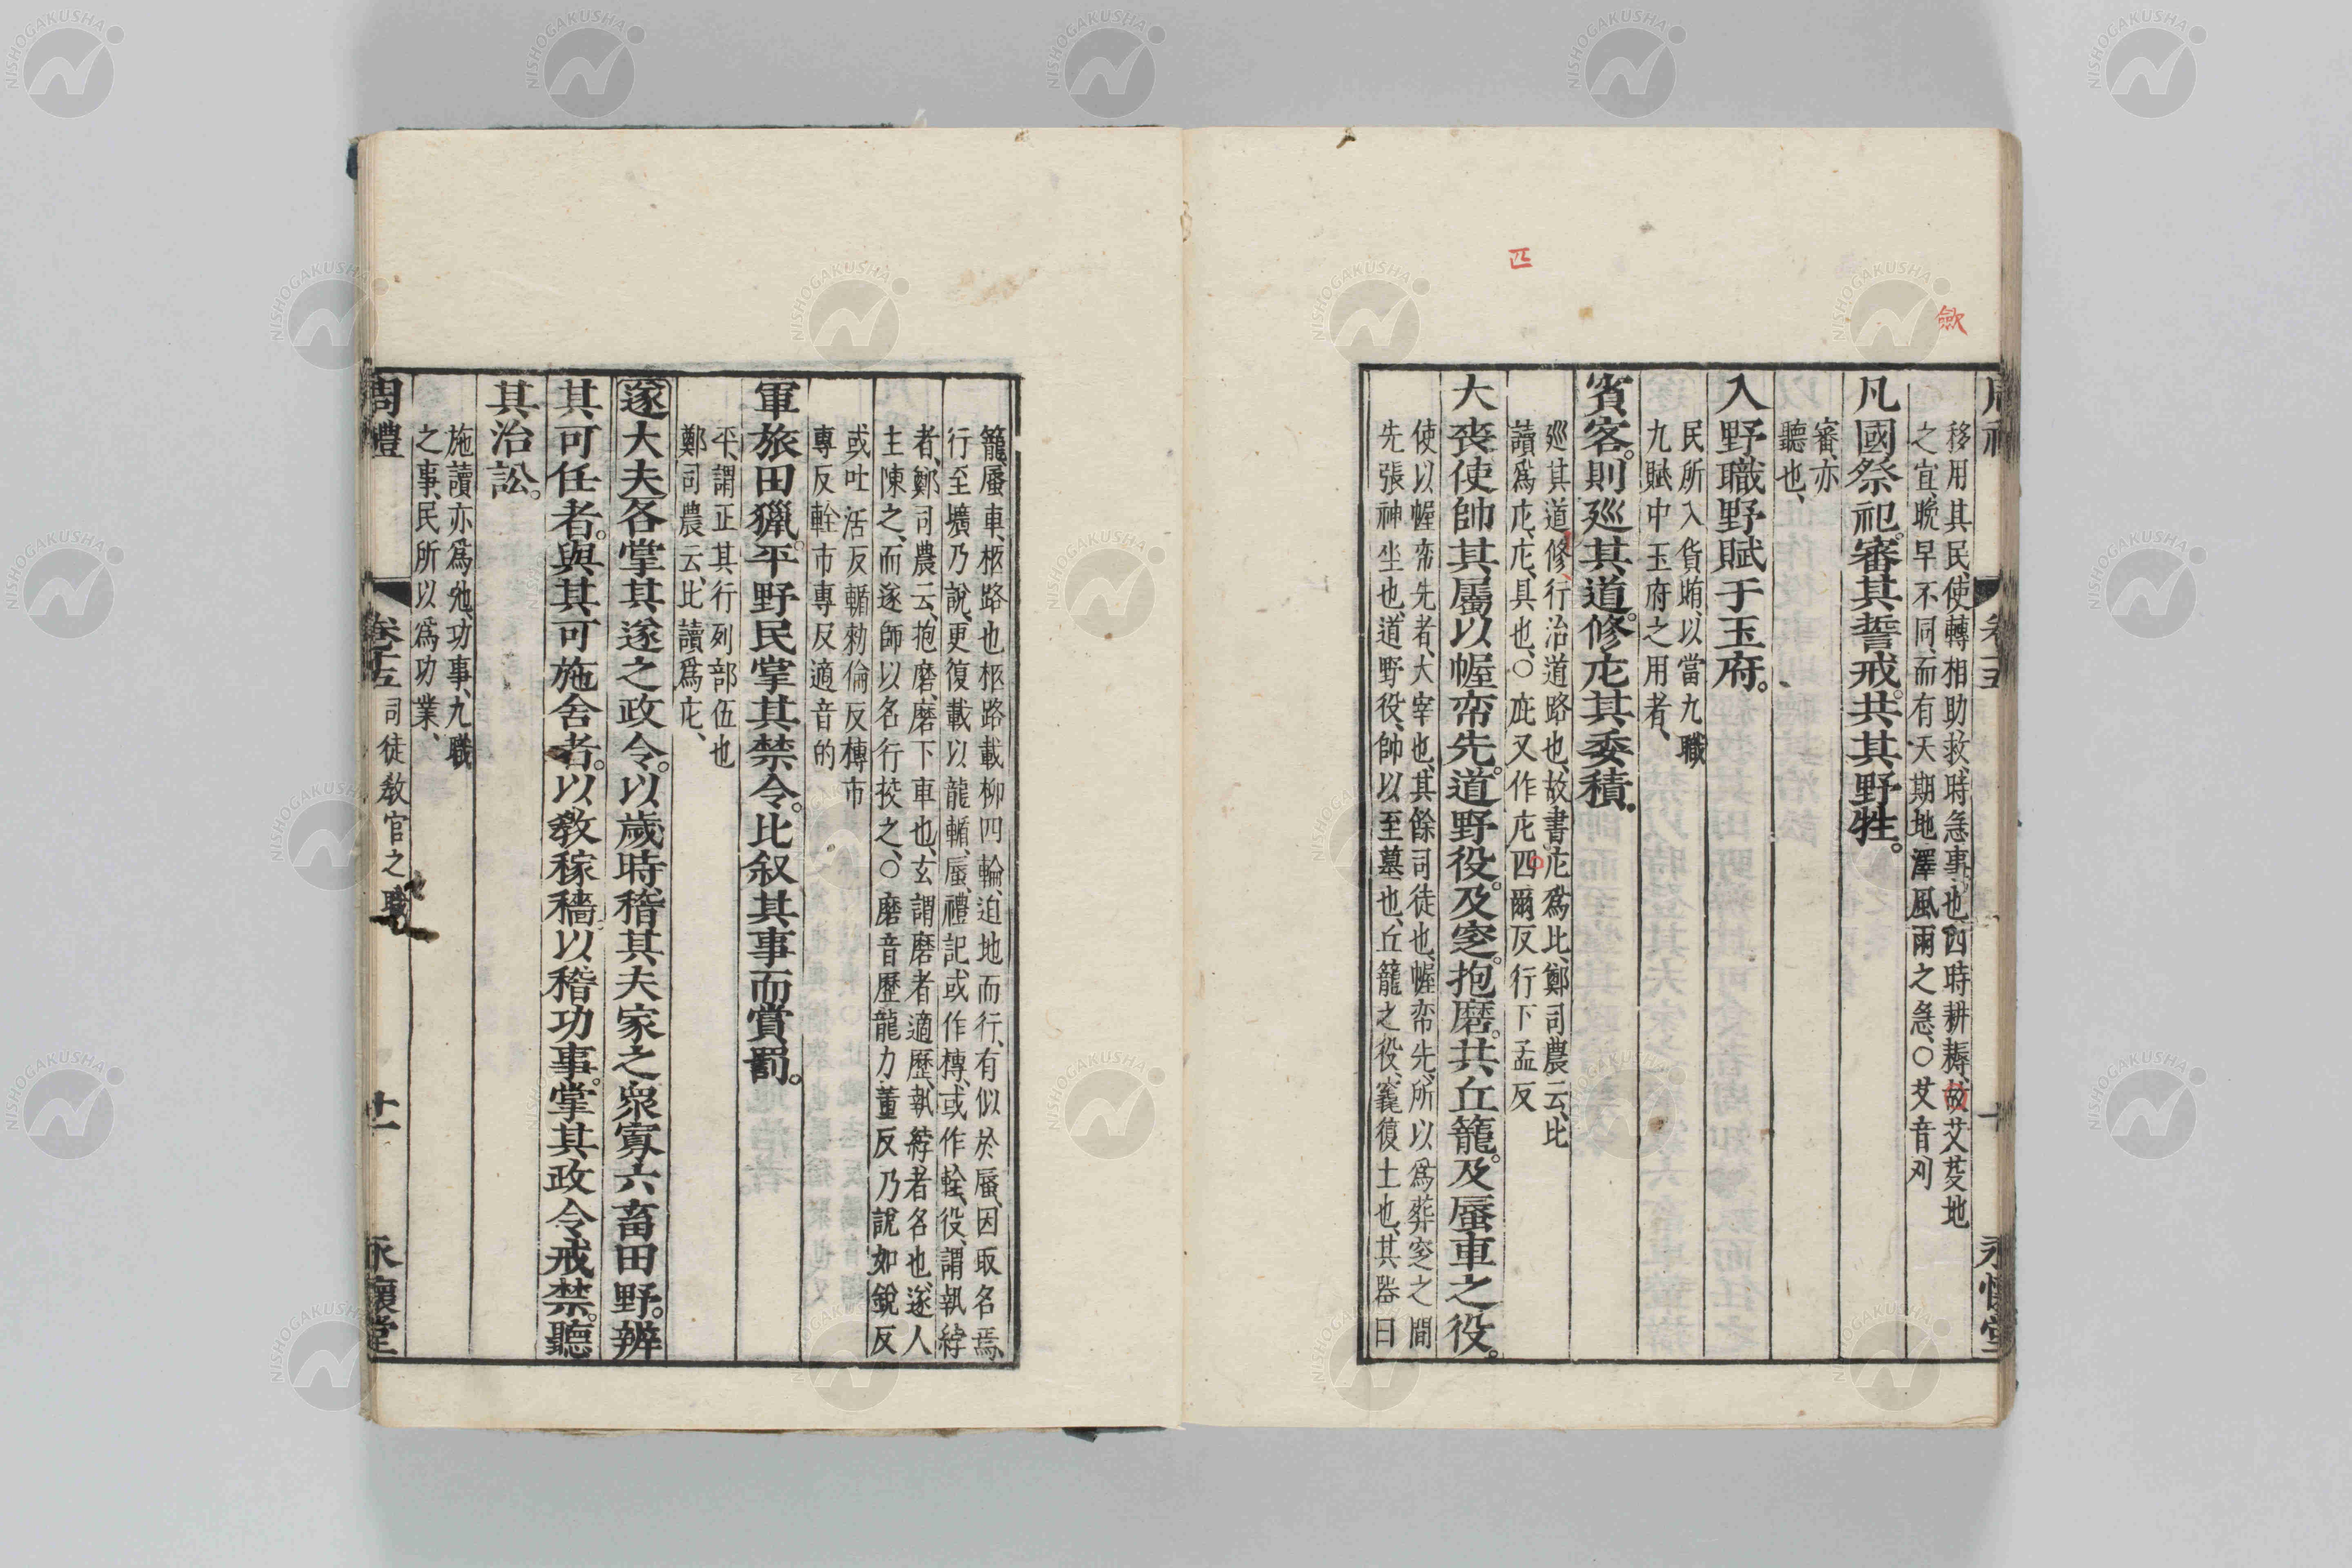 斂
匹
移用其民、使轉相助救、時急事也、四時耕耨、故艾芟地
之宜、晚早不同、而有天期地澤風雨之急、○艾音刈
凡國祭祀。審其誓戒。共其野牲。
審、亦
聽也、
入野職野賦于玉府。
民所入貨賄、以當九職
九賦中玉府之用者、
賓客。則廵其道。修庀其委積。
廵其道修、行治道路也、故書庀爲比、鄭司農云、比
讀爲庀、庀、具也、○庇又作庀四爾反行下孟反
大喪使帥其屬以幄帟先。道野役。及窆。抱磨。共丘籠。及蜃車之役。
使以幄帟先者、大宰也、其餘司徒也、幄帟先、所以爲葬窆之間
先張神坐也、道野役、帥以至墓也、丘籠之役、竁復土也、其器曰
籠、蜃車、柩路也柩路載柳四輪、迫地而行、有似於蜃、因取名焉、
行至壙乃說、更復載以龍輴、蜃、禮記或作槫、或作輇、役、謂執紼
者、鄭司農云、抱磨、磨下車也、玄謂磨者適歷、執紼者名也、遂人
主陳之、而遂師以名行挍之、○磨音歷龍力董反乃說如銳反
或吐活反輴勑倫反槫市
專反輇市專反適音的
軍旅田獵。平野民掌其禁令。比叙其事而賞罰。
平、謂正其行列部伍也
鄭司農云、比讀爲庀、
遂大夫各掌其遂之政令。以歲時稽其夫家之衆寡六畜田野。辨
其可任者。與其可施舍者。以教稼穡以稽功事。掌其政令戒禁。聽
其治訟。
施讀亦爲弛、功事、九職
之事、民所以爲功業、
周禮 卷十五 司徒教官之職 十一 永懷堂
NISHOGAKUSHA